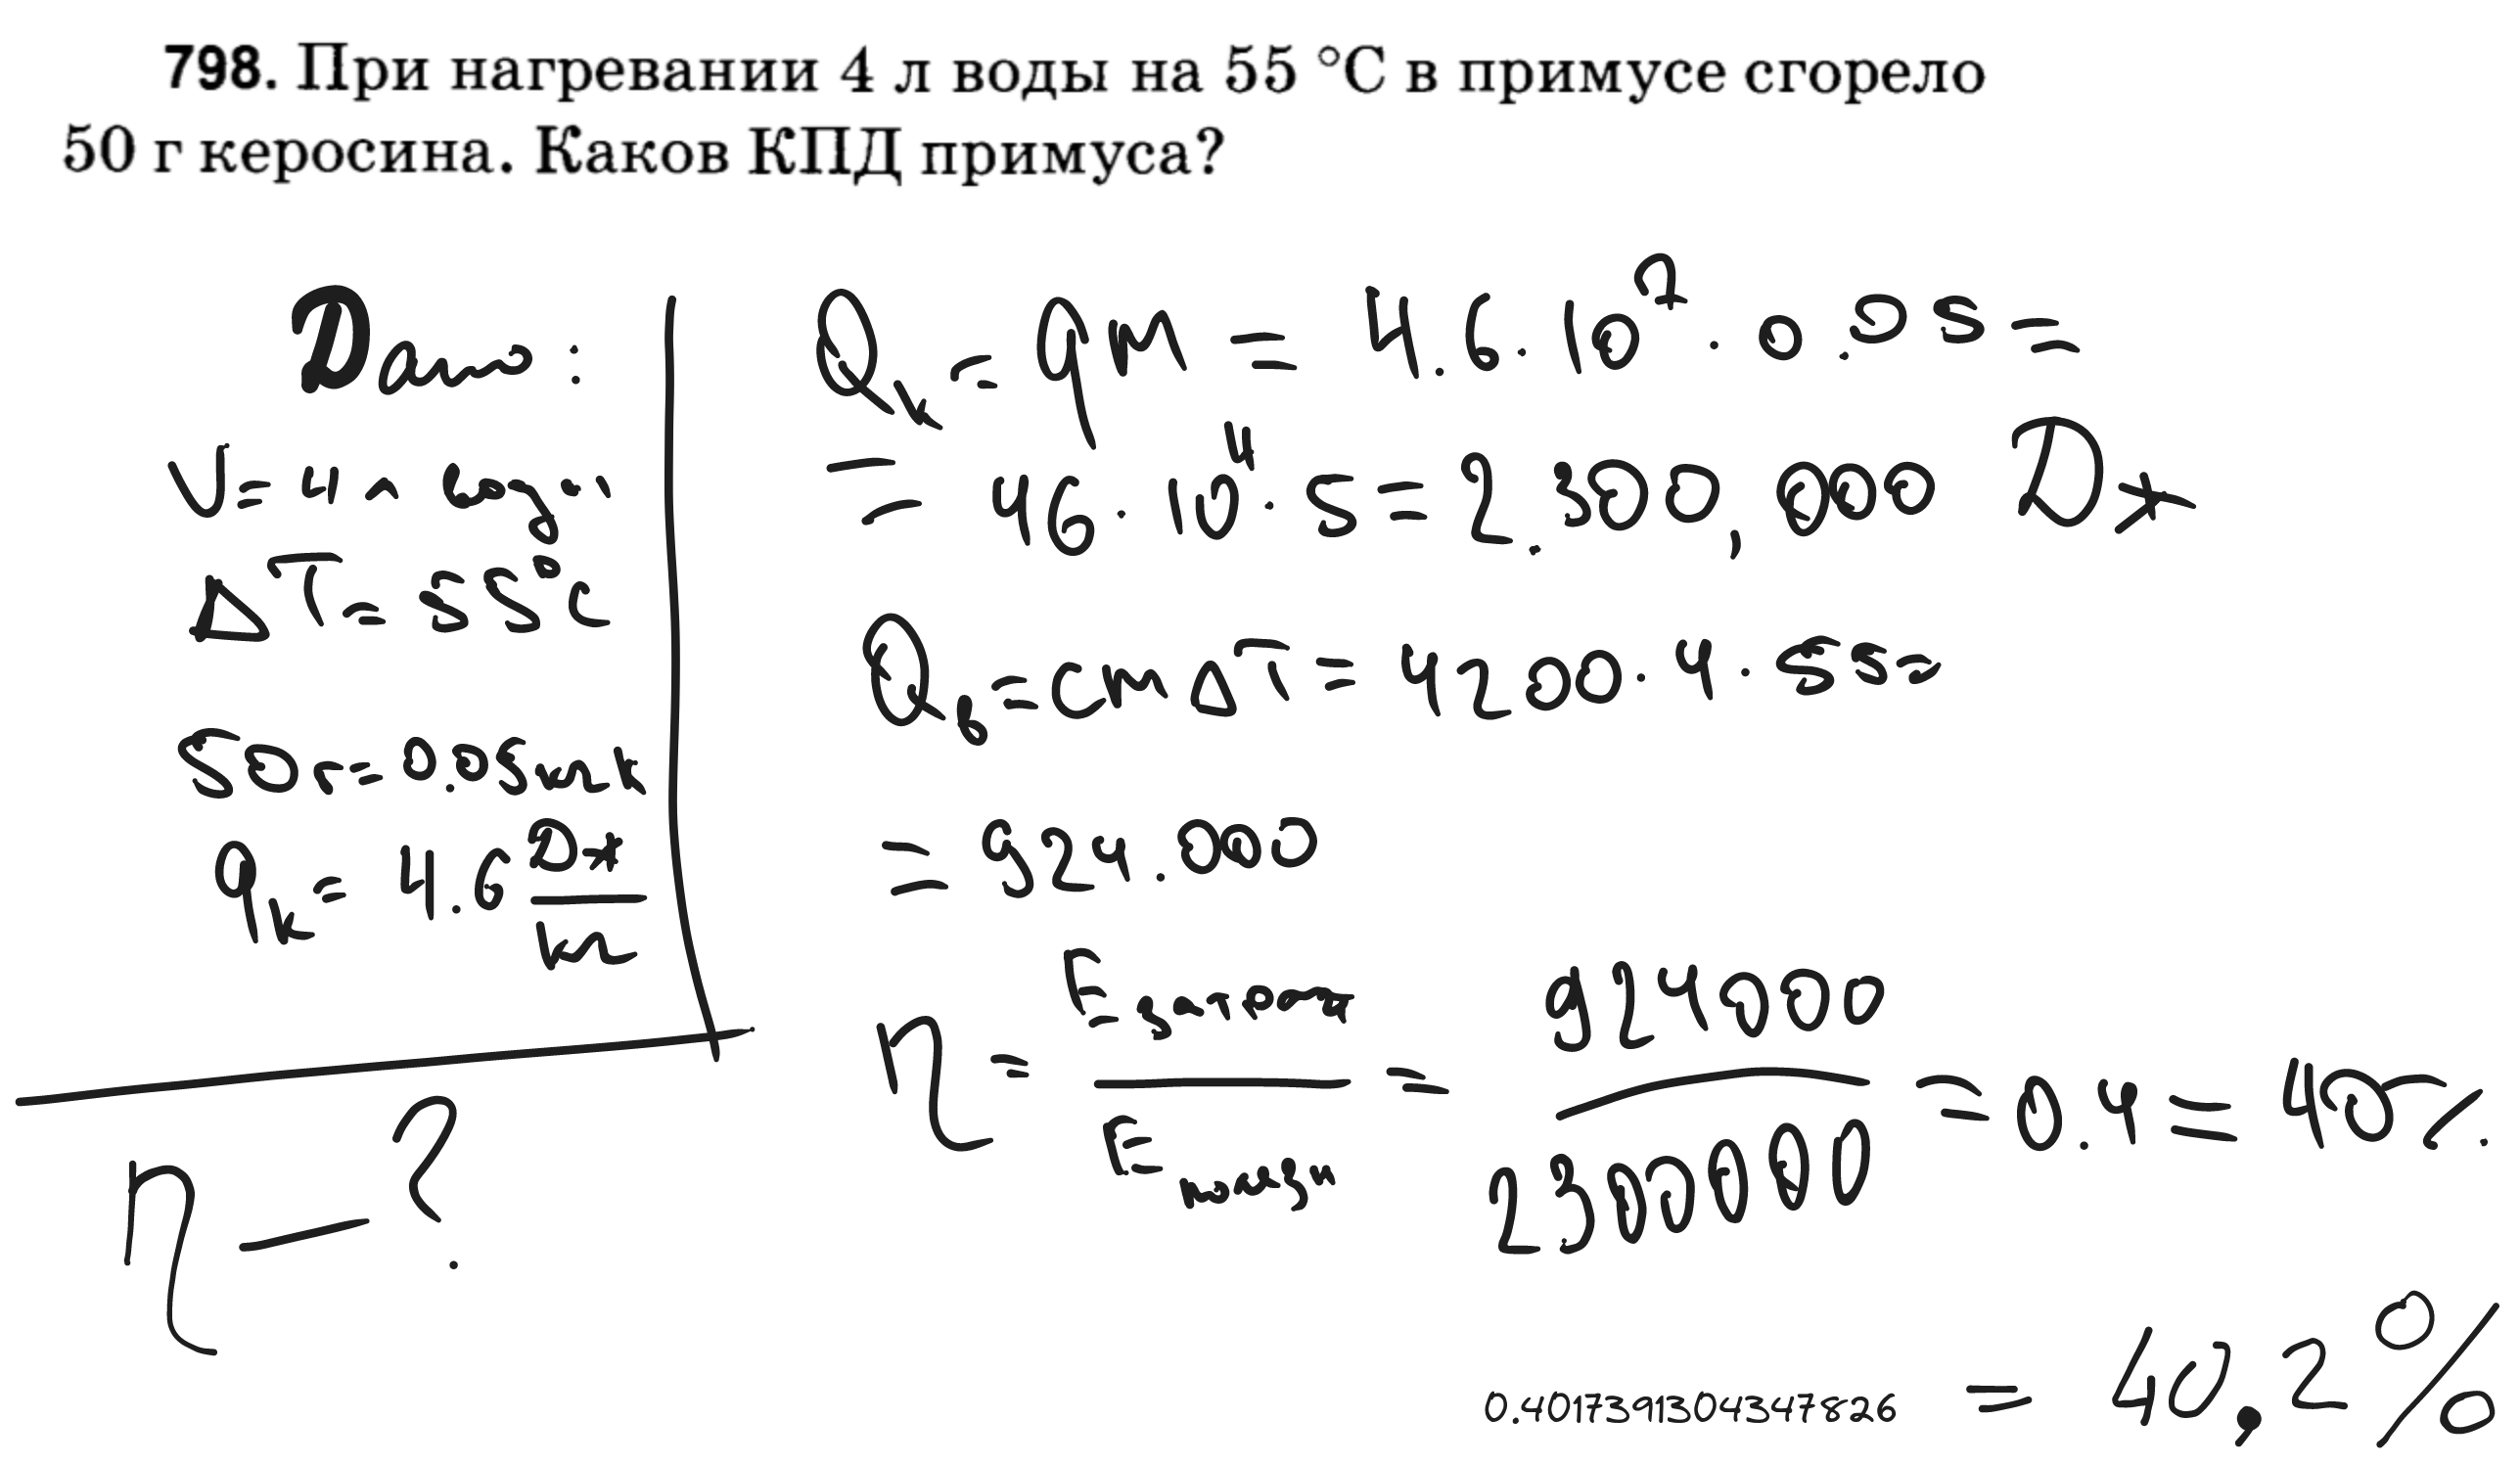 798. При нагревании 4 л воды на 55 °C в примусе сгорело
50 г керосина. Каков КПД примуса?
Дано:
V = 4 л воды
ΔT = 55°C
50 г = 0.05 кг к
qк = 4.6 Дж/кг
η — ?
Qк = qm = 4.6 · 10⁷ · 0.05 =
= 46 · 10⁴ · 5 = 2.300,000 Дж
Qв = cmΔT = 4200 · 4 · 55 =
= 924.000
η = E затрат / E полезн = 924000 / 2300000 = 0.4 = 40%
0.401739130434782​6 = 40,2%